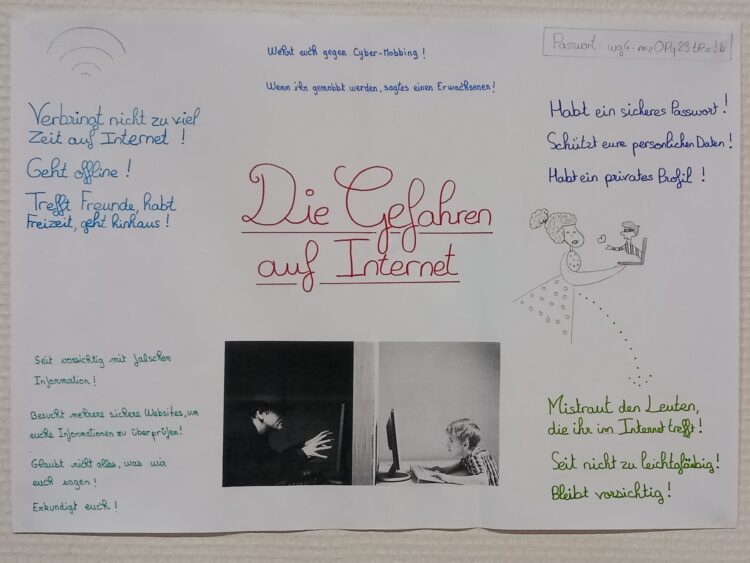 Wehrt euch gegen Cyber-Mobbing !
Wenn ihr gemobbt werden, sagtes einen Erwachsenen !
Passwort :
Verbringt nicht zu viel
Zeit auf Internet !
Geht offline !
Trefft Freunde, habt
Freizeit, geht hinhaus !
Habt ein sicheres Passwort !
Schützt eure personlichen Daten !
Habt ein privates Profil !
Die Gefahren
auf Internet
Seit vorsichtig mit falschen
Information !
Besucht mehrere sichere Websites, um
euche Informationen zu überprüfen !
Glaubt nicht alles, was wir
euch sagen !
Erkundigt euch !
Mistraut den Leuten,
die ihr im Internet trefft !
Seit nicht zu leichtgläubig !
Bleibt vorsichtig !